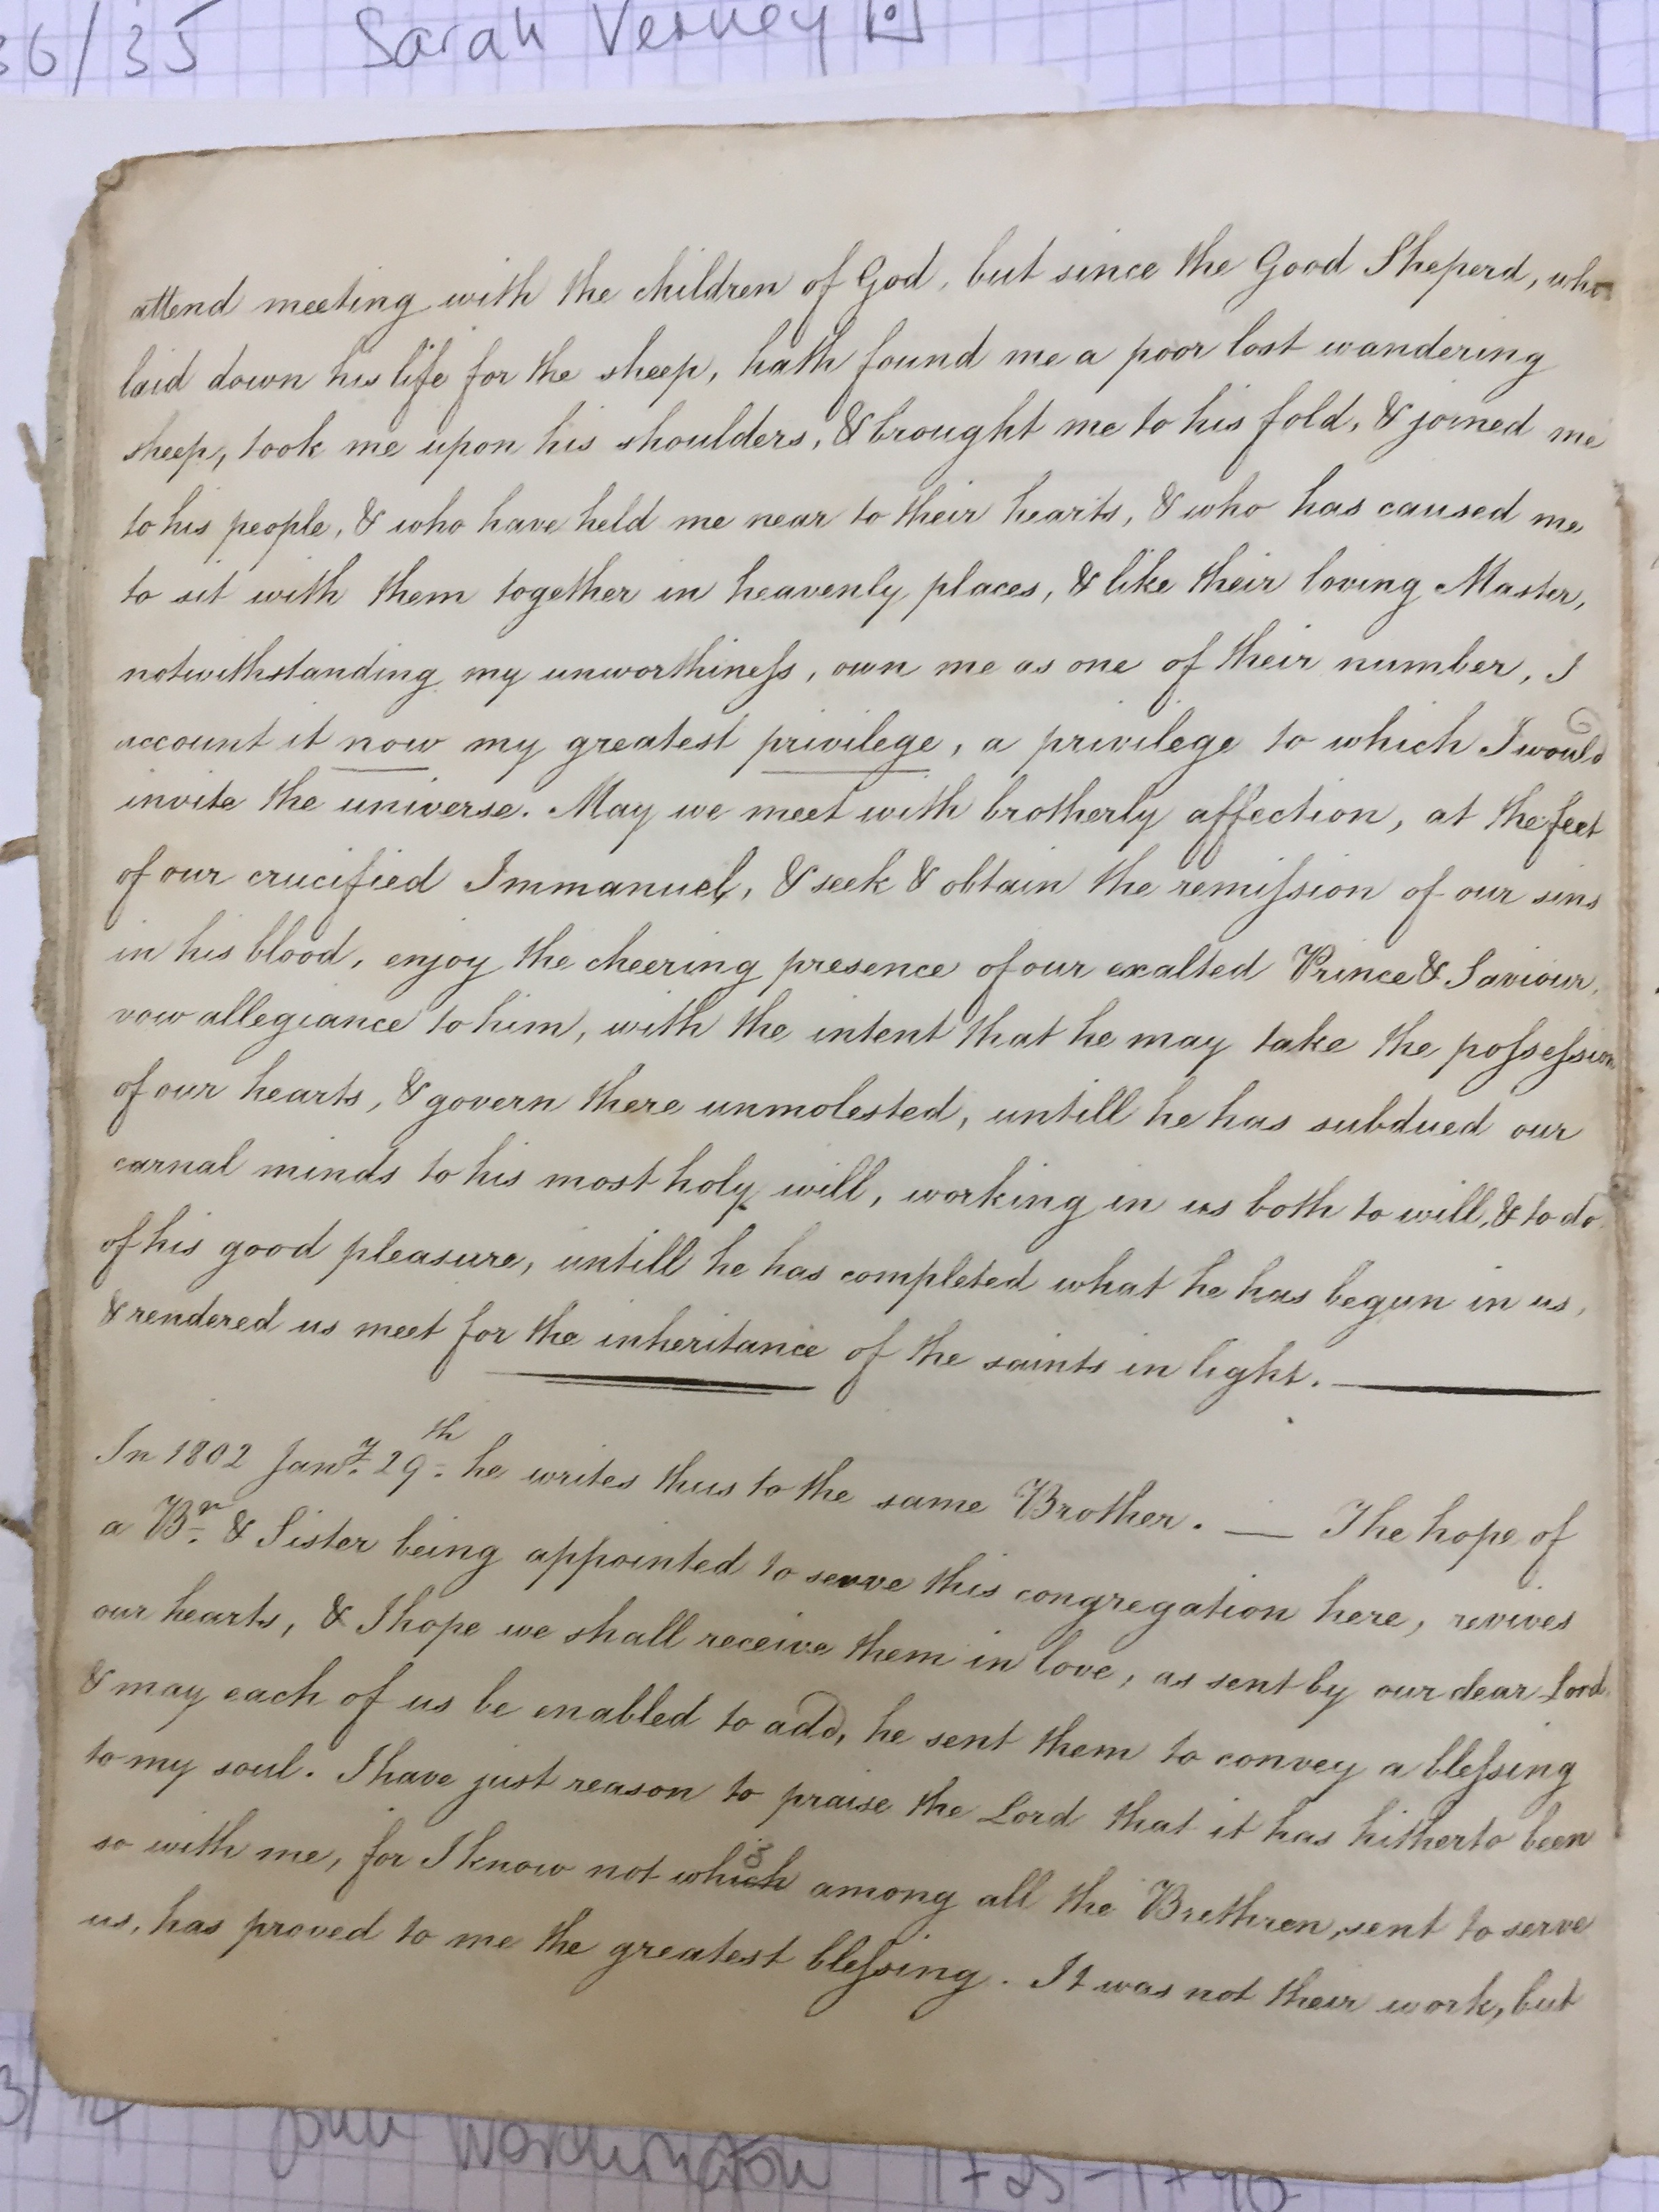 36/35 Sarah Verney
attend meeting with the children of God, but since the Good Sheperd, who
laid down his life for the sheep, hath found me a poor lost wandering
sheep, took me upon his shoulders, & brought me to his fold, & joined me
to his people, & who have held me near to their hearts, & who has caused me
to sit with them together in heavenly places, & like their loving Master,
notwithstanding my unworthineſs, own me as one of their number, I
account it now my greatest privilege, a privilege to which I would
invite the universe. May we meet with brotherly affection, at the feet
of our crucified Immanuel, & seek & obtain the remiſsion of our sins
in his blood, enjoy the cheering presence of our exalted Prince & Saviour,
vow allegiance to him, with the intent that he may take the poſseſsion
of our hearts, & govern there unmolested, untill he has subdued our
carnal minds to his most holy will, working in us both to will, & to do
of his good pleasure, untill he has completed what he has begun in us,
& rendered us meet for the inheritance of the saints in light.
In 1802 Jany. 29th he writes thus to the same Brother. — The hope of
a Br. & Sister being appointed to serve this congregation here, revives
our hearts, & I hope we shall receive them in love, as sent by our dear Lord
& may each of us be enabled to add, he sent them to convey a bleſsing
to my soul. I have just reason to praise the Lord that it has hitherto been
so with me, for I know not which among all the Brethren, sent to serve
us, has proved to me the greatest bleſsing. It was not their work, but
John Worthington